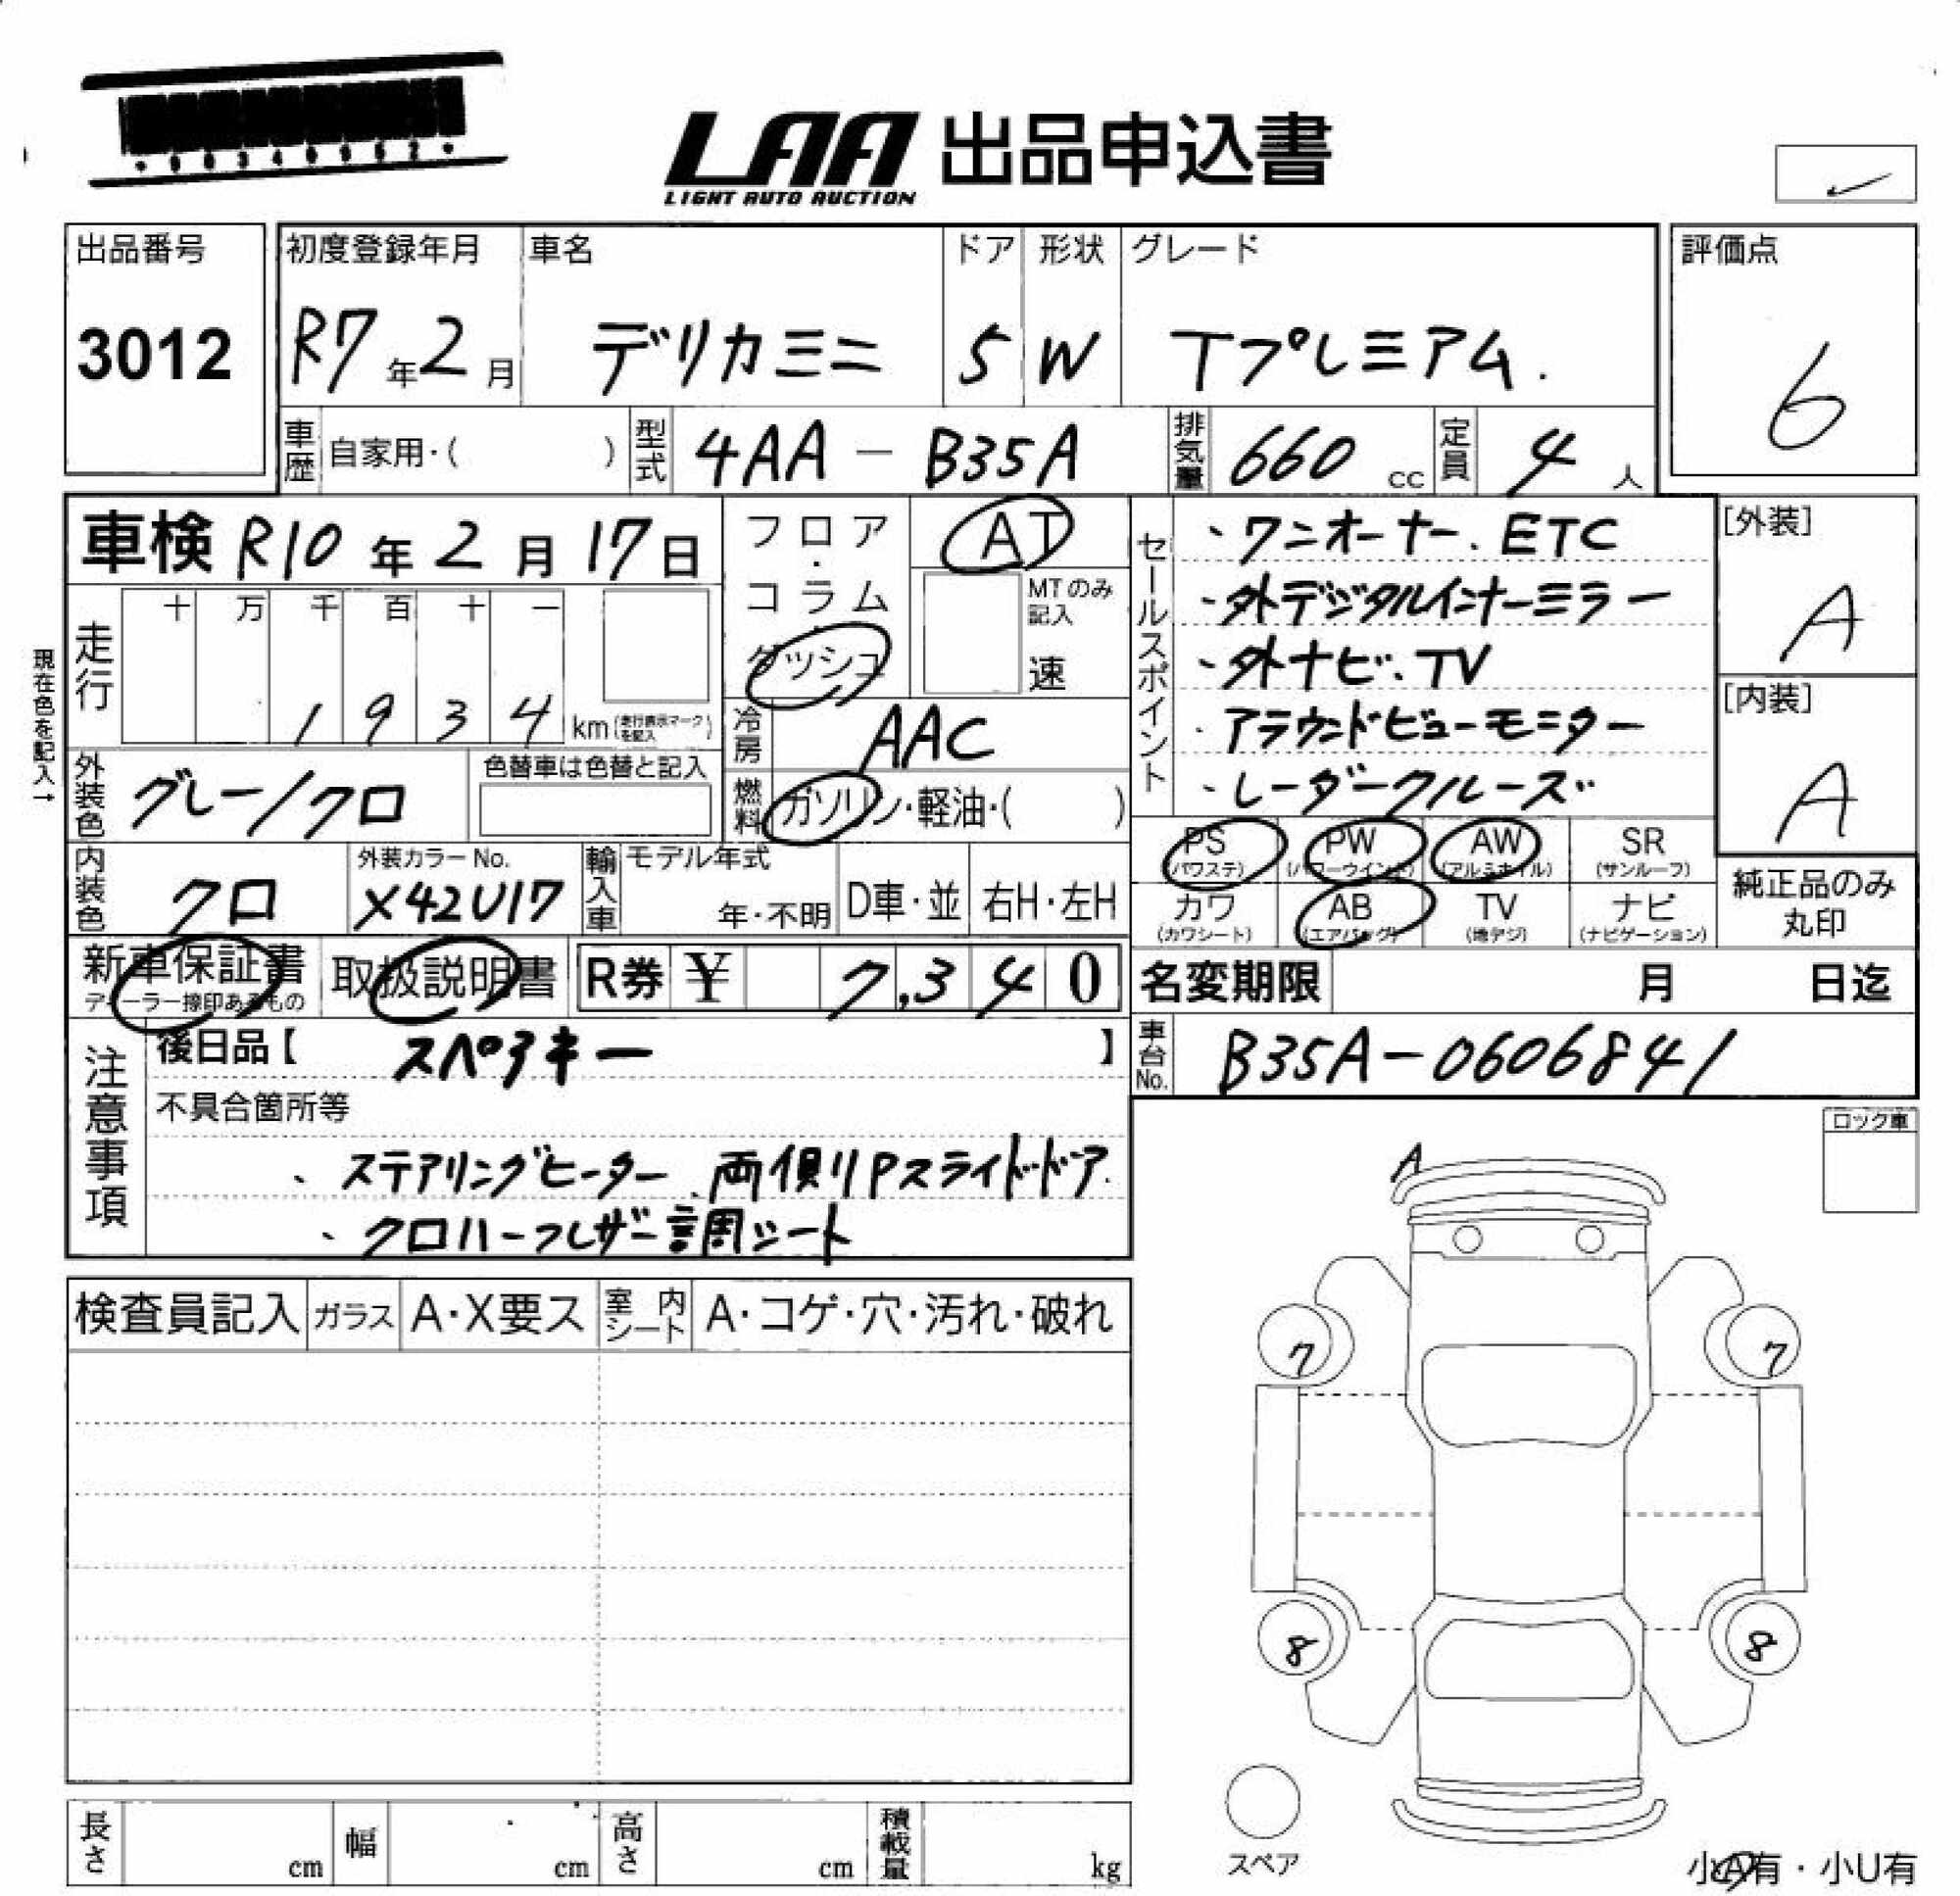 LAA 出品申込書
LIGHT AUTO AUCTION
出品番号
3012
初度登録年月
R7年2月
車名
デリカミニ
ドア
5
形状
W
グレード
Tプレミアム.
評価点
6
車歴 自家用・( )
型式 4AA - B35A
排気量 660 cc
定員 4人
車検 R10年2月17日
フロア・コラム・ダッシュ
AT
MTのみ記入
速
セールスポイント
・ワンオーナー、ETC
・外デジタルインナーミラー
・外ナビ、TV
・アラウンドビューモニター
・レーダークルーズ
[外装]
A
[内装]
A
現在色を記入→
走行
十 万 千 百 十 一
1 9 3 4 km(走行表示マークを記入)
冷房 AAC
外装色 グレー/クロ
色替車は色替と記入
燃料 ガソリン・軽油・( )
PS (パワステ)
PW (パワーウインド)
AW (アルミホイル)
SR (サンルーフ)
カワ (カワシート)
AB (エアバッグ)
TV (地デジ)
ナビ (ナビゲーション)
純正品のみ丸印
内装色 クロ
外装カラーNo.
X42U17
輸入車
モデル年式
年・不明
D車・並
右H・左H
新車保証書
ディーラー捺印あるもの
取扱説明書
R券 ¥ 7,340
名変期限 月 日迄
車台No. B35A-0606841
注意事項
後日品【 スペアキー 】
不具合箇所等
、ステアリングヒーター、両側Pスライドドア.
、クロハーフレザー調シート
ロック車
A
検査員記入
ガラス A・X要ス
室内シート A・コゲ・穴・汚れ・破れ
7 7
8 8
スペア
長さ cm
幅 cm
高さ cm
積載量 kg
小A有・小U有